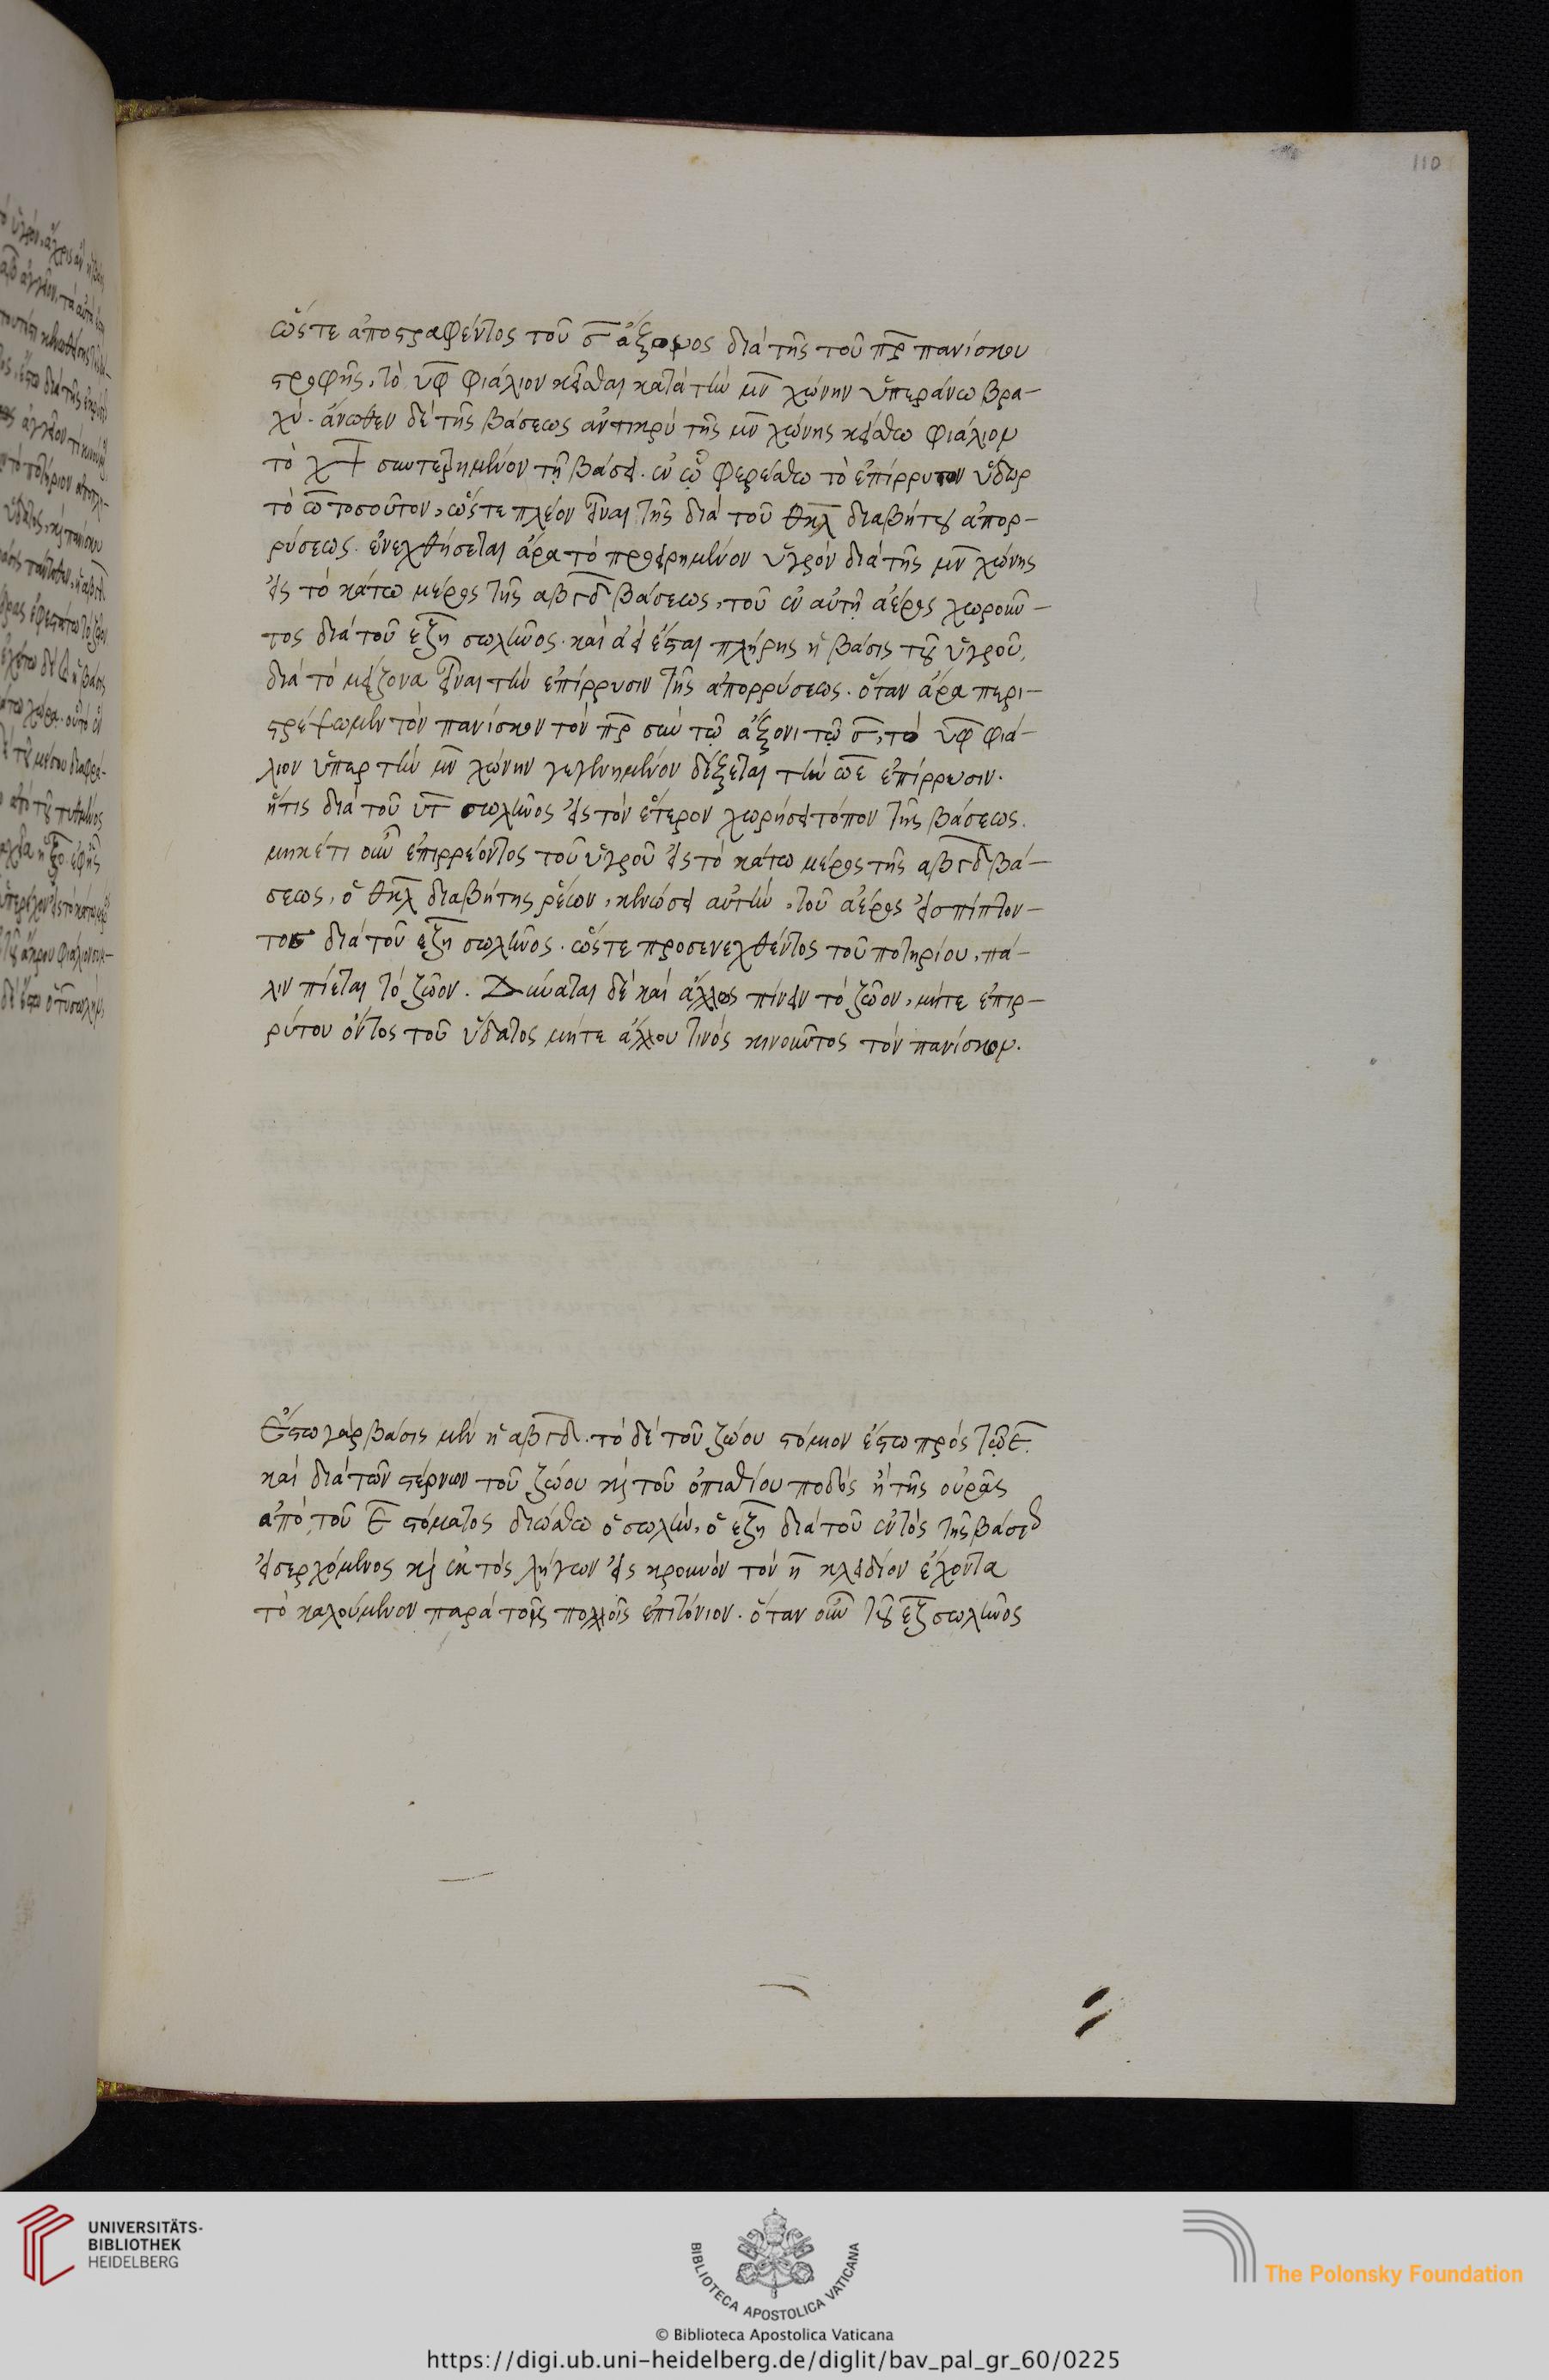 110
ὥστε ἀποστραφέντος τοῦ σ ἄξονος διὰ τῆς τοῦ πρ πανίσκου
στροφῆς, τὸ υφ φιάλιον κεῖσθαι κατὰ τὴν μν χώνην ὑπεράνω βρα-
χύ. ἄνωθεν δὲ τῆς βάσεως ἀντικρὺ τῆς μν χώνης κείσθω φιάλιον
τὸ χψ συντετρημένον τῇ βάσει. ἐν ᾧ φερέσθω τὸ ἐπίρρυτον ὕδωρ
τὸ ω τοσοῦτον, ὥστε πλέον εἶναι τῆς διὰ τοῦ θκλ διαβήτου ἀπορ-
ρύσεως. ἐνεχθήσεται ἄρα τὸ προειρημένον ὑγρὸν διὰ τῆς μν χώνης
εἰς τὸ κάτω μέρος τῆς αβγδ βάσεως, τοῦ ἐν αὐτῇ ἀέρος χωροῦν-
τος διὰ τοῦ εζη σωλῆνος. καὶ ἀεὶ ἔσται πλήρης ἡ βάσις τοῦ ὑγροῦ,
διὰ τὸ μείζονα εἶναι τὴν ἐπίρρυσιν τῆς ἀπορρύσεως. ὅταν ἄρα περι-
στρέψωμεν τὸν πανίσκον τὸν πρ σὺν τῷ ἄξονι τῷ σ, τὸ υφ φιά-
λιον ὑπὲρ τὴν μν χώνην γεγενημένον δέξεται τὴν ωε ἐπίρρυσιν.
ἥτις διὰ τοῦ υτ σωλῆνος εἰς τὸν ἕτερον χωρήσει τόπον τῆς βάσεως.
μηκέτι οὖν ἐπιρρέοντος τοῦ ὑγροῦ εἰς τὸ κάτω μέρος τῆς αβγδ βά-
σεως, ὁ θκλ διαβήτης ῥέων, κενώσει αὐτὴν, τοῦ ἀέρος εἰσπίπτον-
τος διὰ τοῦ εζη σωλῆνος. ὥστε προσενεχθέντος τοῦ ποτηρίου, πά-
λιν πίεται τὸ ζῷον. Δύναται δὲ καὶ ἄλλως πίνειν τὸ ζῷον, μήτε ἐπιρ-
ρύτου ὄντος τοῦ ὕδατος μήτε ἄλλου τινὸς κινοῦντος τὸν πανίσκον.
Ἔστω γὰρ βάσις μὲν ἡ αβγδ. τὸ δὲ τοῦ ζῴου στόμιον ἔστω πρὸς τῷ ε.
καὶ διὰ τῶν στέρνων τοῦ ζῴου καὶ τοῦ ὀπισθίου ποδὸς ἢ τῆς οὐρᾶς
ἀπὸ τοῦ ε στόματος διώσθω ὁ σωλὴν, ὁ εζη διὰ τοῦ ἐντὸς τῆς βάσεως
εἰσερχόμενος καὶ ἐκτὸς λήγων εἰς κρουνὸν τὸν η κλειδίον ἔχοντα
τὸ καλούμενον παρὰ τοῖς πολλοῖς ἐπιτόνιον. ὅταν οὖν τοῦ εζ σωλῆνος
UNIVERSITÄTS-
BIBLIOTHEK
HEIDELBERG
BIBLIOTECA APOSTOLICA VATICANA
The Polonsky Foundation
© Biblioteca Apostolica Vaticana
https://digi.ub.uni-heidelberg.de/diglit/bav_pal_gr_60/0225